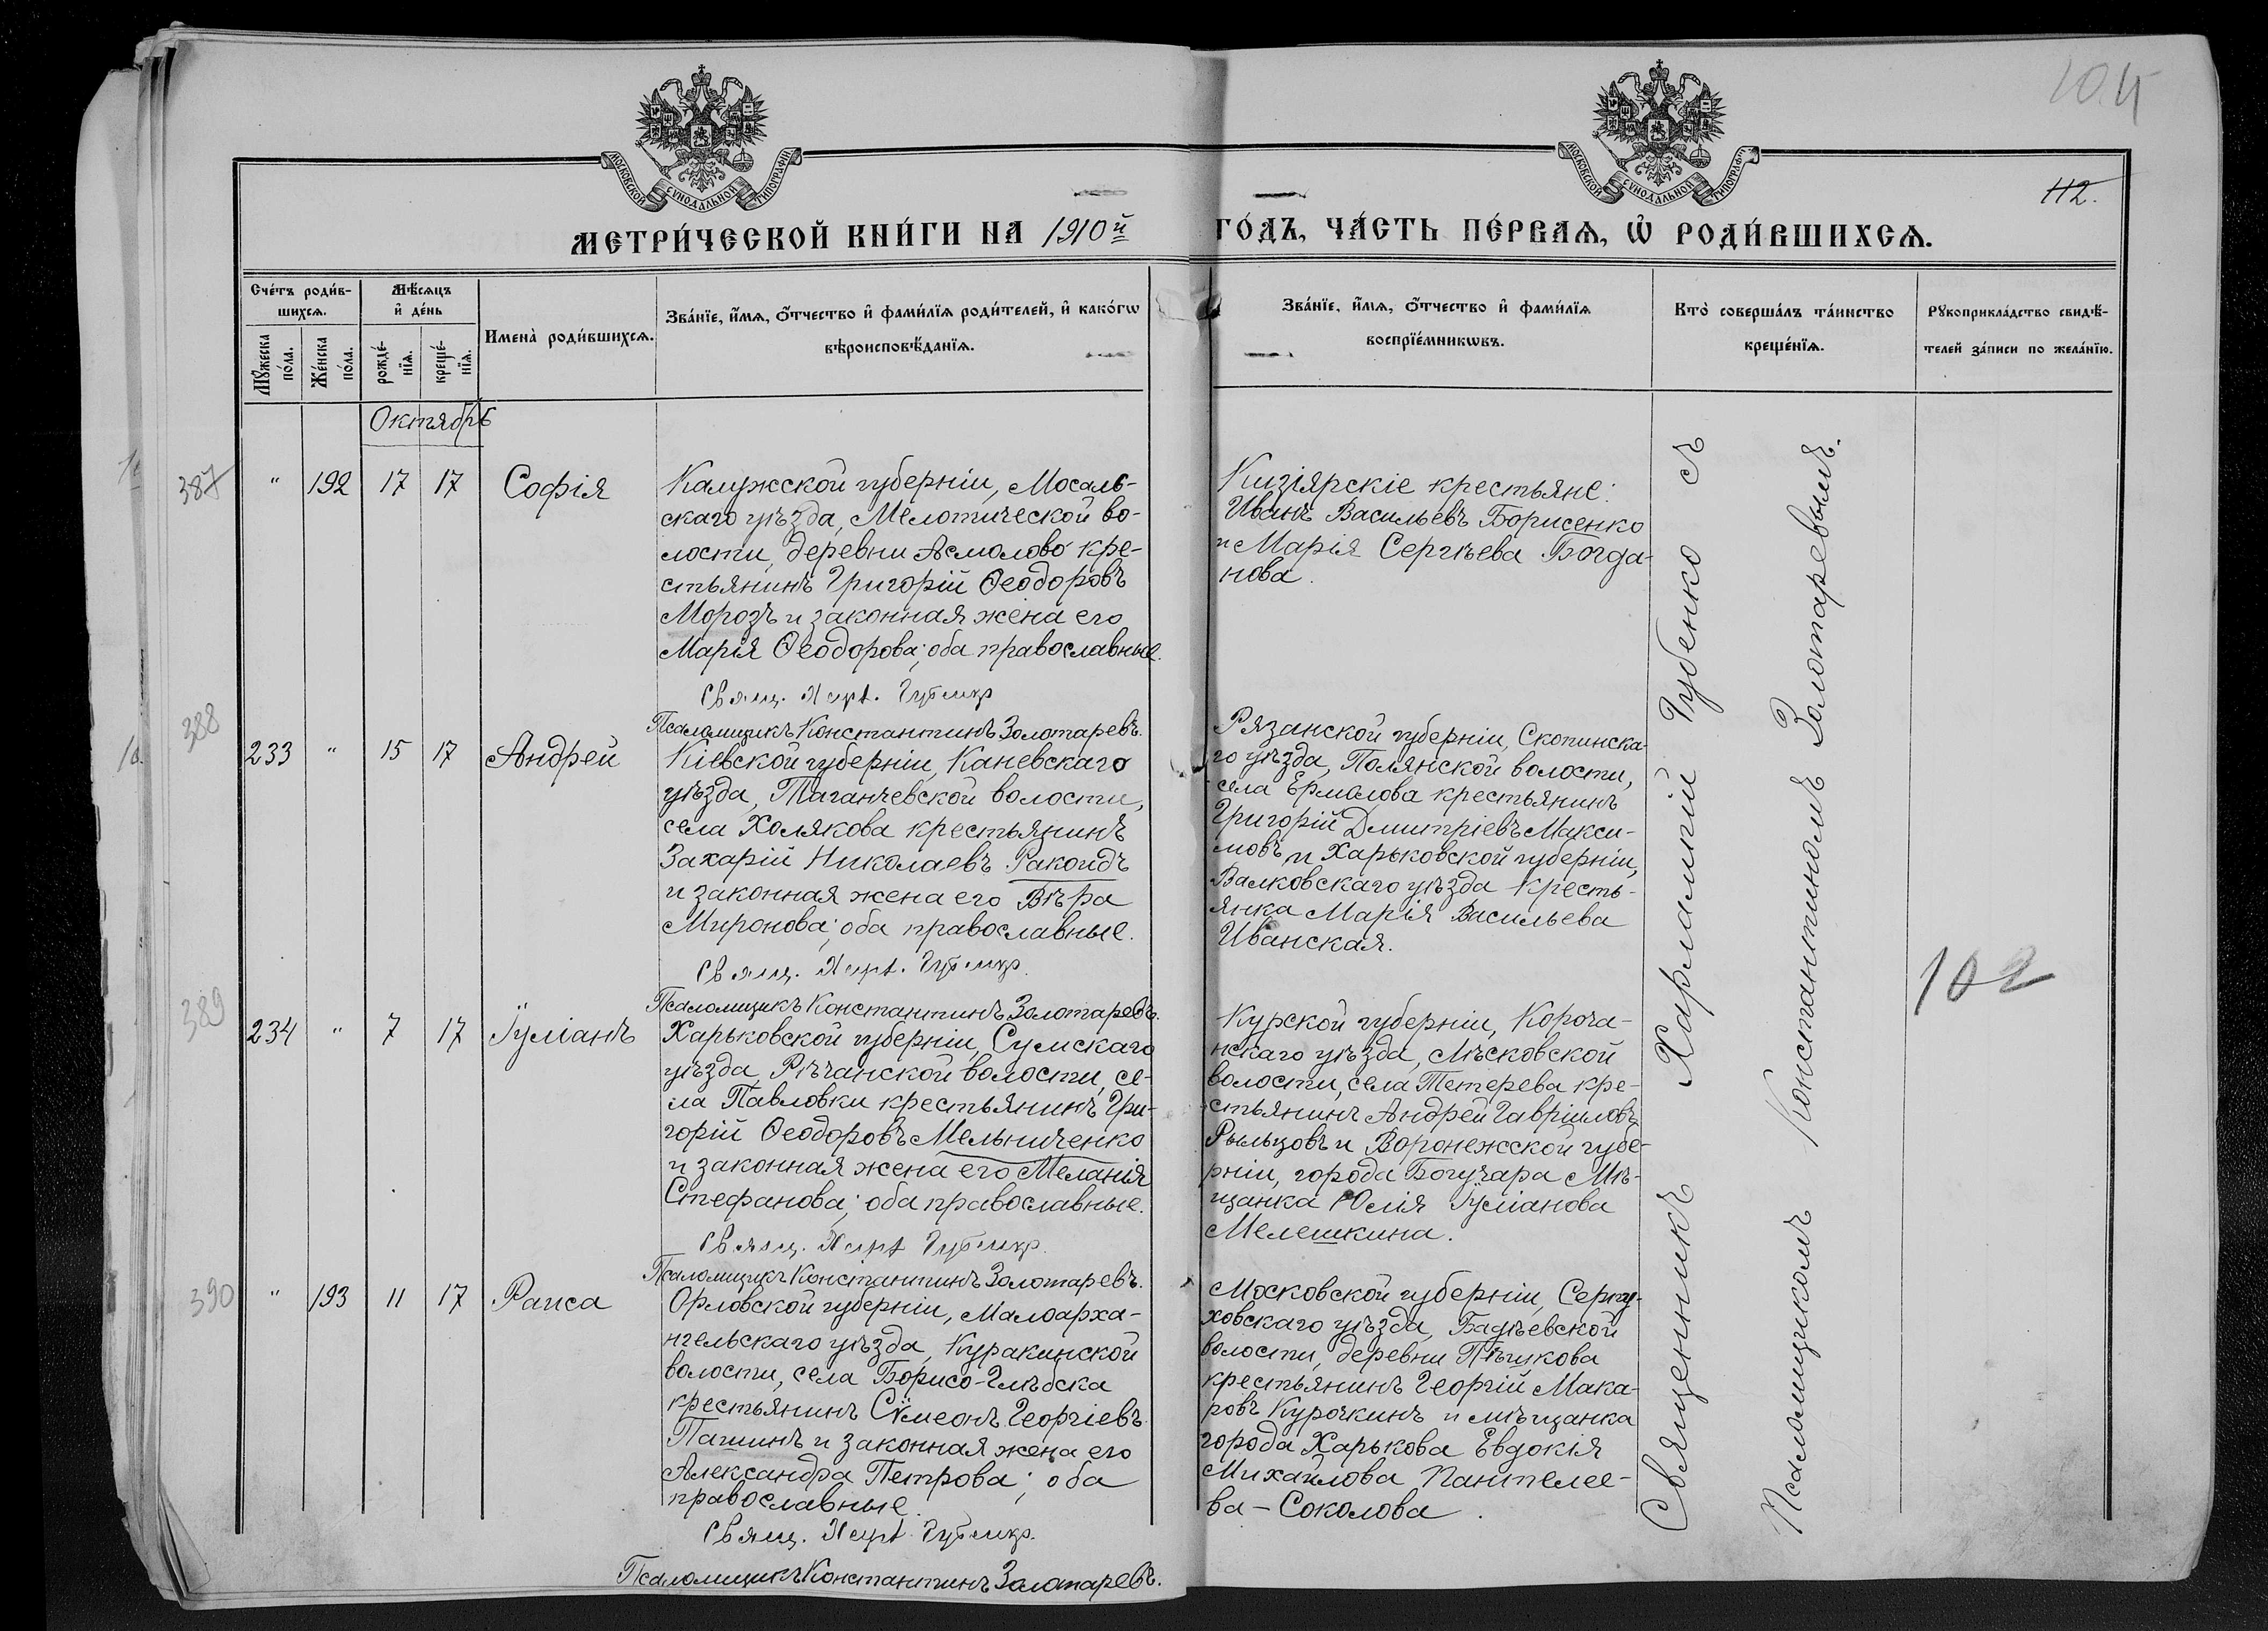 МОСКОВСКОЙ СѴНОДАЛЬНОЙ ТИПОГРАФІИ
МОСКОВСКОЙ СѴНОДАЛЬНОЙ ТИПОГРАФІИ
112.
МЕТРИ́ЧЕСКОЙ КНИ́ГИ НА 1910й
ГО́ДЪ, ЧА́СТЬ ПЕ́РВАѦ, Ѡ҆ РОДИ́ВШИХСѦ.
Сче́тъ роди́в-
шихсѧ.
Мꙋ́жеска по́ла.
Же́нска по́ла.
Мѣ́сѧцъ
и҆ де́нь
рожде́-
нїѧ.
креще́-
нїѧ.
Имена̀ роди́вшихсѧ.
Зва́нїе, и҆́мѧ, ѻ҆́тчество и҆ фами́лїѧ роди́телей, и҆ како́гѡ
вѣроисповѣ́данїѧ.
Зва́нїе, и҆́мѧ, ѻ҆́тчество и҆ фами́лїѧ
воспрїе́мникѡвъ.
Кто̀ соверша́лъ та́инство
креще́нїѧ.
Рꙋкоприкла́дство свидѣ́-
телей за́писи по жела́нїю.
Октябрь
387
" 192 17 17 Софія
Калужской губерніи, Мосаль-
скаго уѣзда, во-
лости, деревни Асмолово кре-
стьянинъ Григорій Ѳеодоровъ
Морозъ и законная жена его
Марія Ѳеодорова; оба православные.
Свящ. Харл. Губенко
Псаломщикъ Константинъ Золотаревъ.
Кизіярскіе крестьяне:
Иванъ Васильевъ Борисенко
и Марія Сергѣева Богда-
нова.
388
233 " 15 17 Андрей
Кіевской губерніи, Каневскаго
уѣзда, Таганчевской волости,
села Холякова крестьянинъ
Захарій Николаевъ Ракоидъ
и законная жена его Вѣра
Миронова; оба православные.
Свящ. Харл. Губенко.
Псаломщикъ Константинъ Золотаревъ.
Рязанской губерніи, Скопинска-
го уѣзда, Полянской волости,
села Ермолова крестьянинъ
Григорій Дмитріевъ Макси-
мовъ и Харьковской губерніи,
Валковскаго уѣзда кресть-
янка Марія Васильева
Иванская.
389
234 " 7 17 Іуліанъ
Харьковской губерніи, Сумскаго
уѣзда, Рѣчанской волости, се-
ла Павловки крестьянинъ Гри-
горій Ѳеодоровъ Мельниченко
и законная жена его Меланія
Стефанова; оба православные.
Свящ. Харл. Губенко.
Псаломщикъ Константинъ Золотаревъ.
Курской губерніи, Короча-
нскаго уѣзда, волости, села Тетерева кре-
стьянинъ Андрей Гавріиловъ
Рыльцовъ и Воронежской губе-
рніи, города Богучара мѣ-
щанка Юлія Іуліанова
Мелешкина.
102
390
" 193 11 17 Раиса
Орловской губерніи, Малоарха-
нгельскаго уѣзда, Куракинской
волости, села Борисо-Глѣбска
крестьянинъ Сѵмеонъ Георгіевъ
Пашинъ и законная жена его
Александра Петрова; оба
православные.
Свящ. Харл. Губенко.
Псаломщикъ Константинъ Золотаревъ.
Московской губерніи, Серпу-
ховскаго уѣзда, Бадѣевской
волости, деревни
крестьянинъ Георгій Мака-
ровъ Курочкинъ и мѣщанка
города Харькова Евдокія
Михайлова Пантелее-
ва-Соколова.
Священникъ Харлампій Губенко съ
Псаломщикомъ Константиномъ Золотаревымъ.